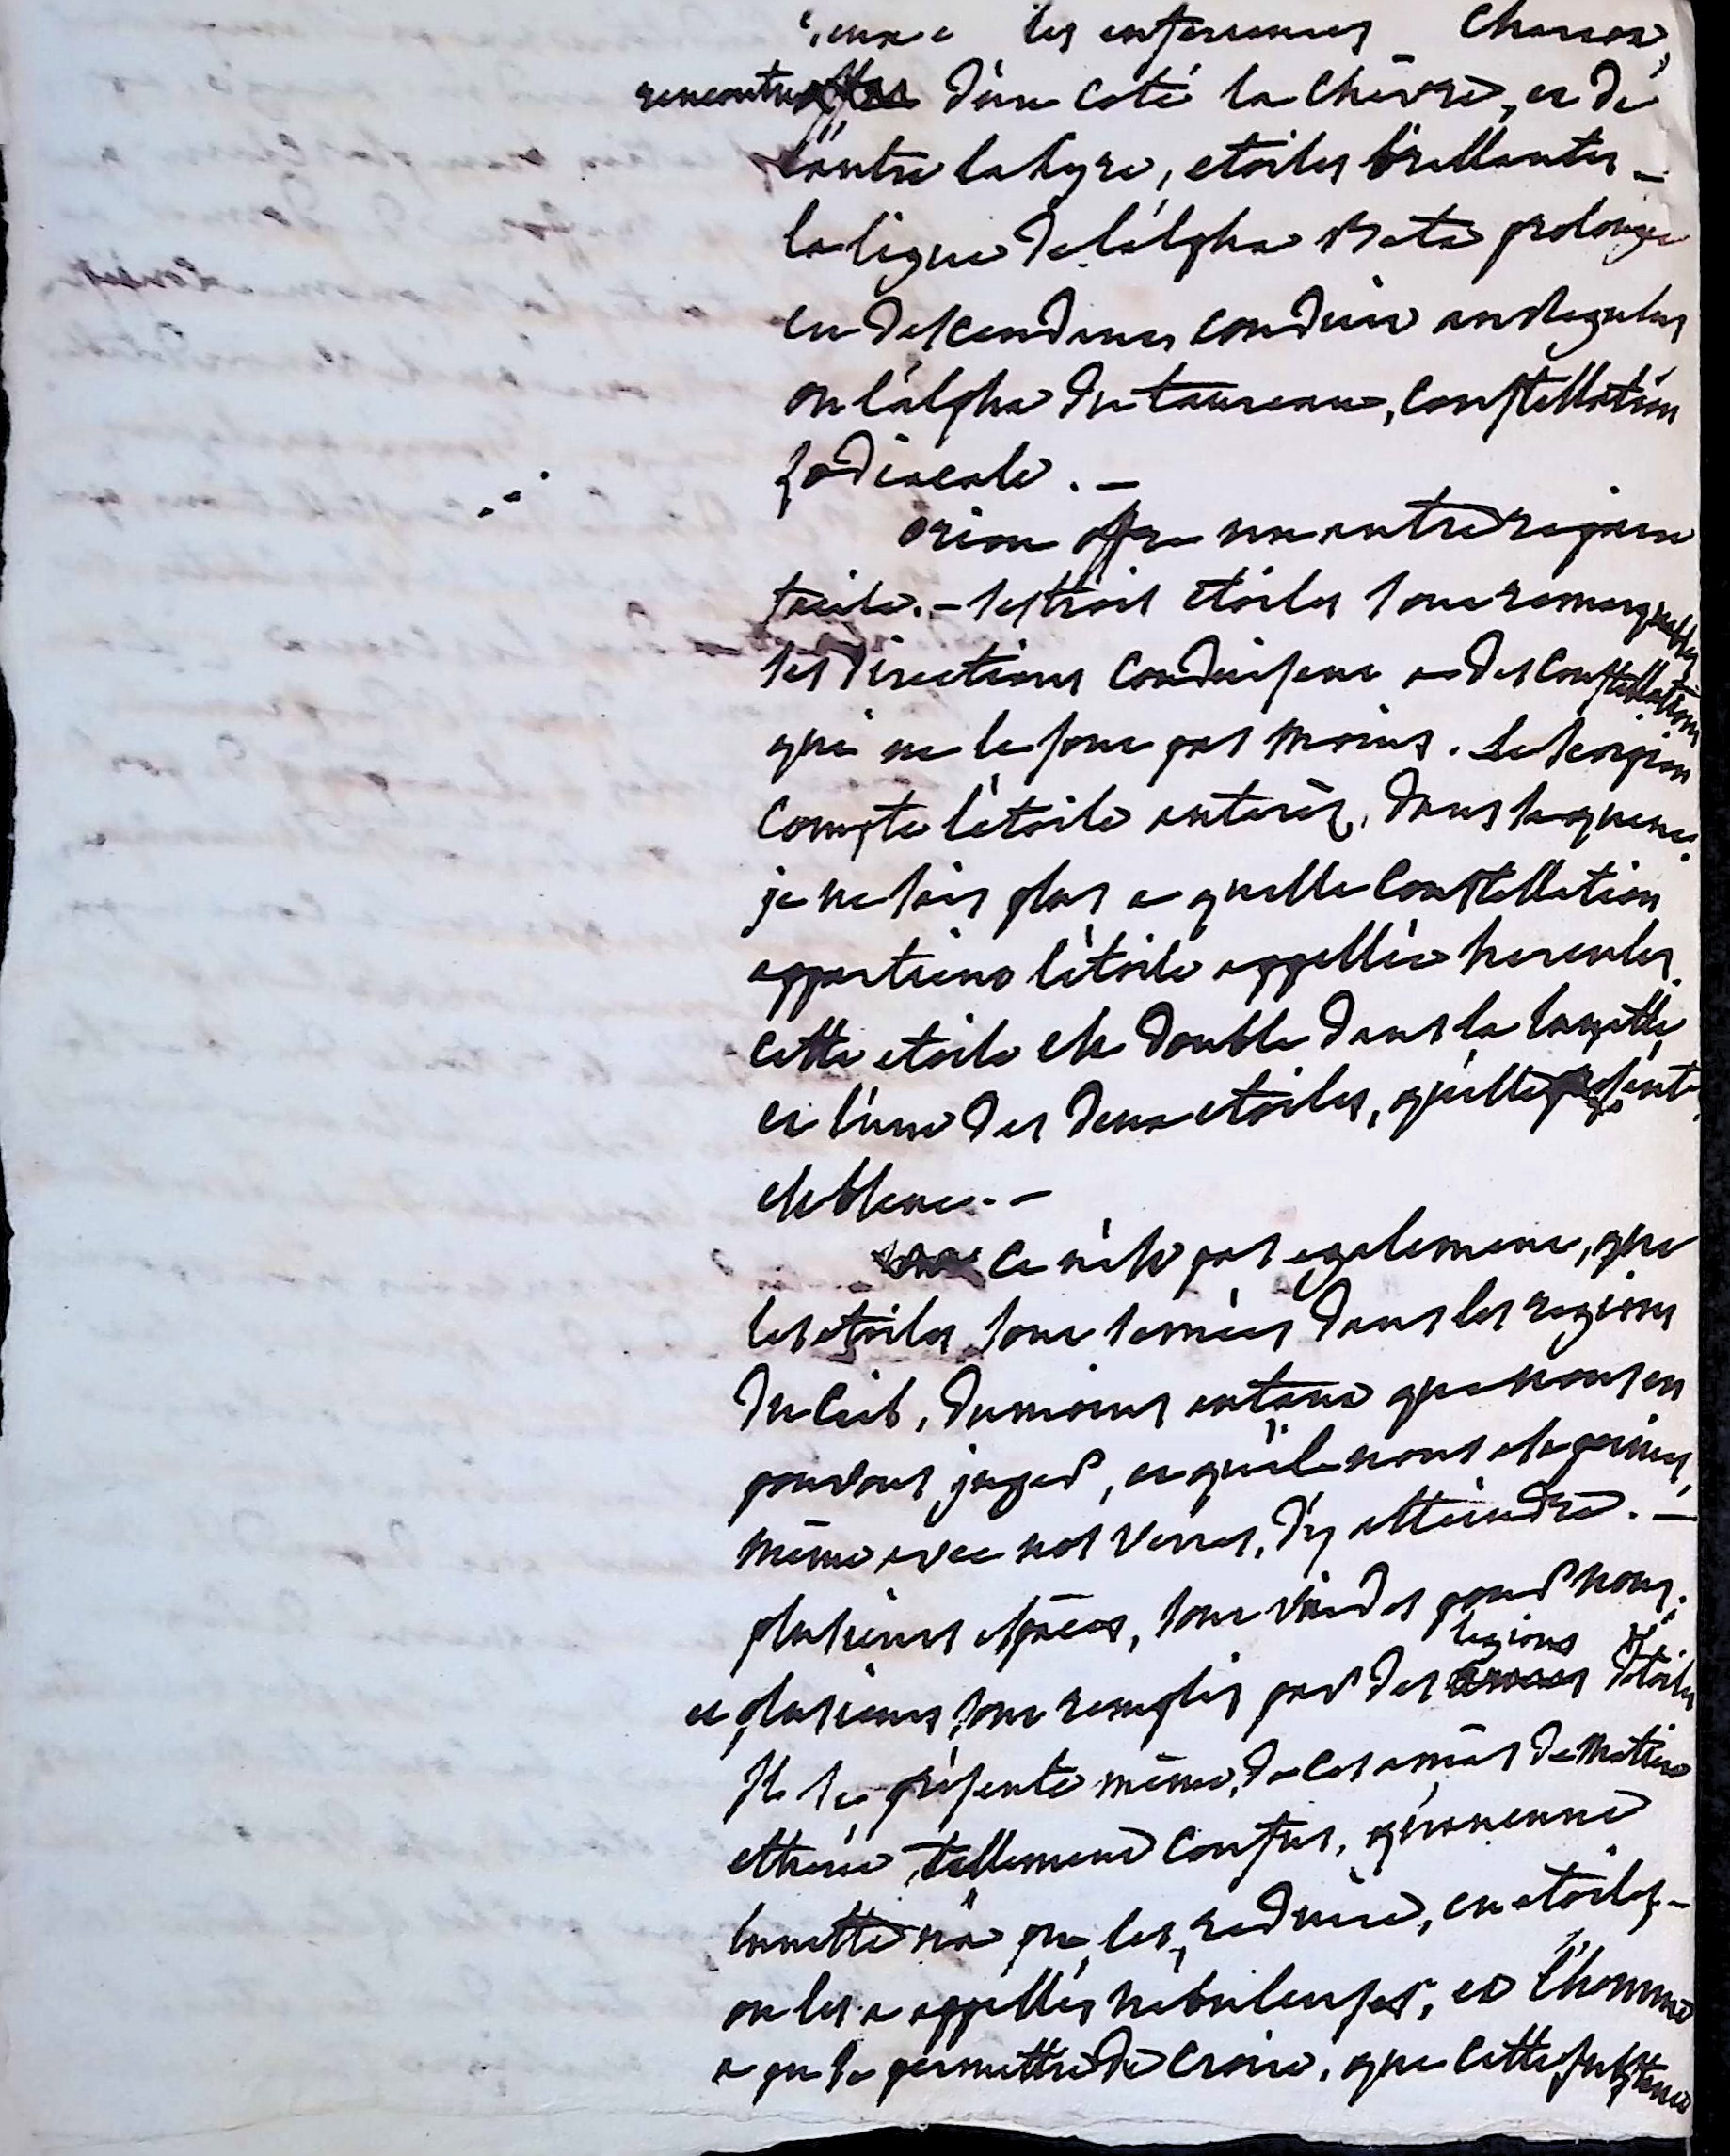 les inferieures Chariot,
rencontre d'un coté la chèvre, et de
l'autre la lyre, etoiles brillantes _
la ligne de l'alpha Beta prolongée
en descendant conduit au Regulus
ou l'alpha du taureau, constellation
zodiacale. _
orion offre un autre repaire
facile. _ ses trois étoiles sont remarquables
ses directions conduisent a des constellations
qui ne le sont pas moins. Le scorpion
compte l'étoile antarès, dans sa queue.
je ne sais plus a quelle constellation
appartient l'étoile appellée hercules.
cette etoile est double dans la lunette,
et l'une des deux etoiles, qu'elle présente
est bleue. _
ce n'est pas egalement, que
les etoiles sont semées dans les regions
du ciel, du moins autant que nous en
pouvons juger, et qu'il nous est permis,
même avec nos verres, d'y atteindre. _
plusieurs espaces, sont vuides pour nous;
et plusieurs sont remplis par des legions d'étoiles
Il se présente même, de ces amas de matière
etherée, tellement confus, qu'aucune
lunette n'a pu les reduire, en etoiles _
on les a appellés nébuleuses, et l'homme
a pu se permettre de croire, que cette substance